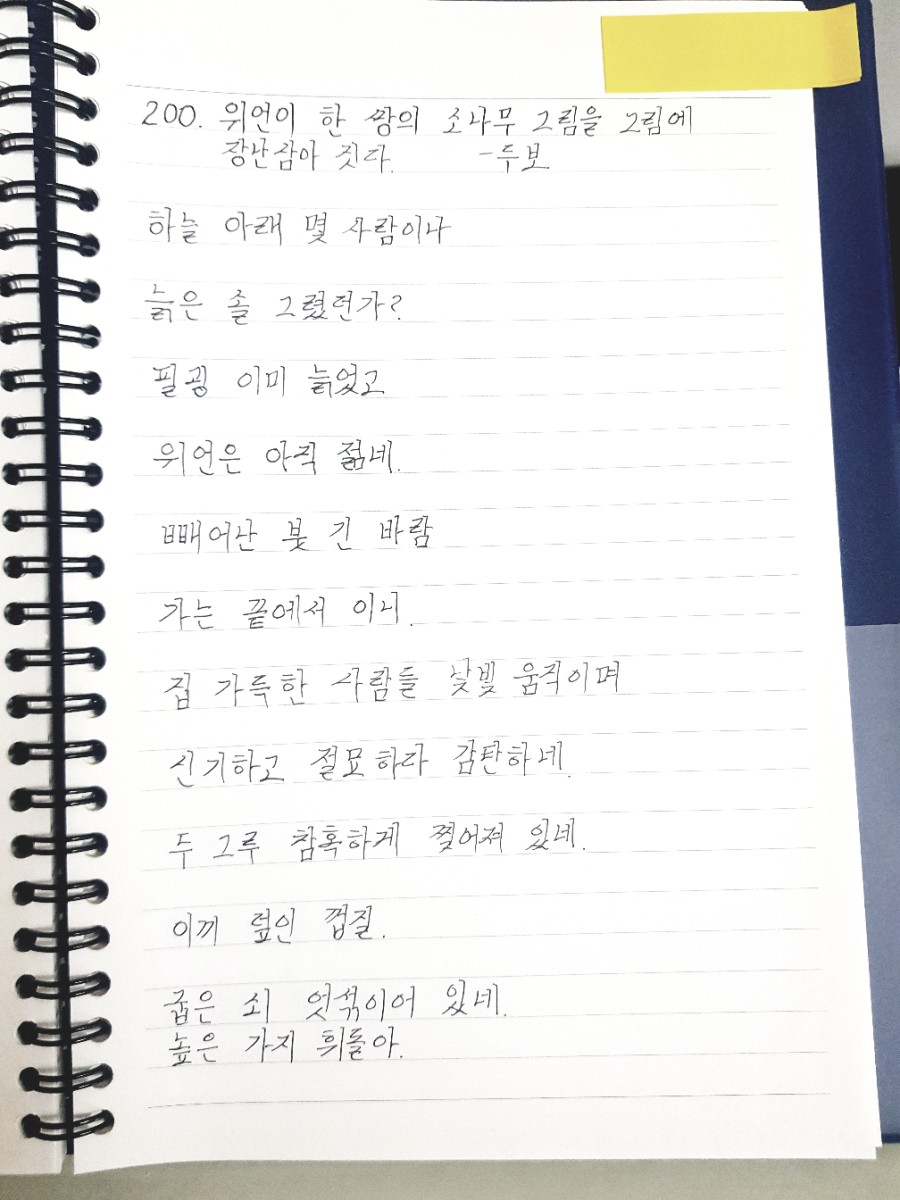 200. 위언이 한 쌍의 소나무 그림을 그림에
장난삼아 짓다. -두보
하늘 아래 몇 사람이나
늙은 졸 그렸던가?
필굉 이미 늙었고
위언은 아직 젊네.
빼어난 붓 긴 바람
가는 끝에서 이니.
집 가득한 사람들 낯빛 움직이며
신기하고 절묘하라 감탄하네.
두 그루 참혹하게 찢어져 있네.
이끼 덮인 껍질.
굽은 쇠 엇섞이어 있네.
높은 가지 휘돌아.